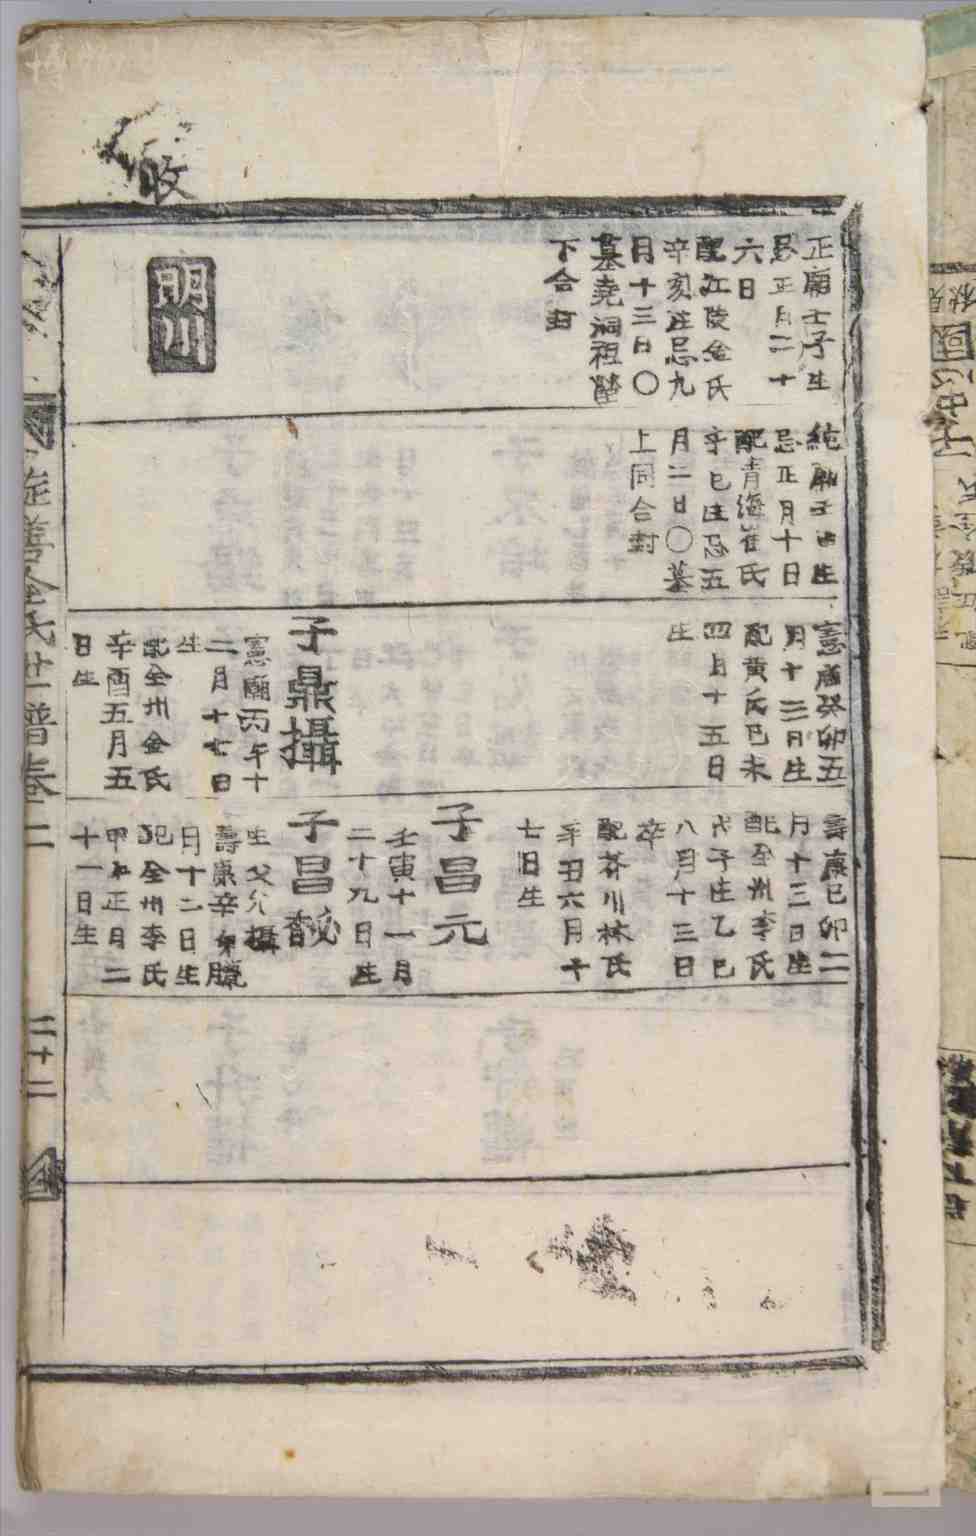 收
正廟壬子生
忌正月二十
六日
配江陵金氏
辛亥生忌九
月十三日〇
墓堯洞祖塋
下合封
明川
純廟壬申生
忌正月十日
配青海崔氏
辛巳生忌五
月二日〇墓
上同合封
憲廟癸卯五
月十三日生
配黃氏己未
四月十五日
生
子鼎攝
憲廟丙午十
二月十七日
生
配全州金氏
辛酉五月五
日生
壽康己卯二
月十三日生
配全州李氏
戊子生乙巳
八月十三日
卒
配芥川林氏
辛丑六月十
七日生
子昌元
壬寅十一月
二十九日生
子昌馝
生父允攝
壽康辛卯臘
月十二日生
配全州李氏
甲午正月二
十一日生
旌善金氏世譜卷二
二十二